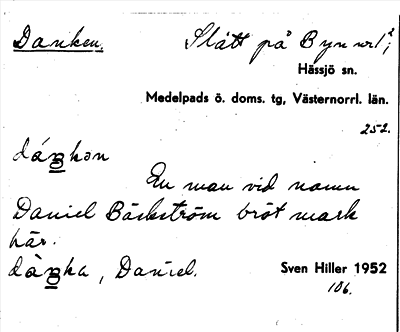 Danken.
Slått på Byn nr 1²;
Hässjö sn.
Medelpads ö. doms. tg, Västernorrl. län.
252.
dáŋkən
En man vid namn
Daniel Bäckström bröt mark
här.
dàŋka, Daniel.
Sven Hiller 1952
106.